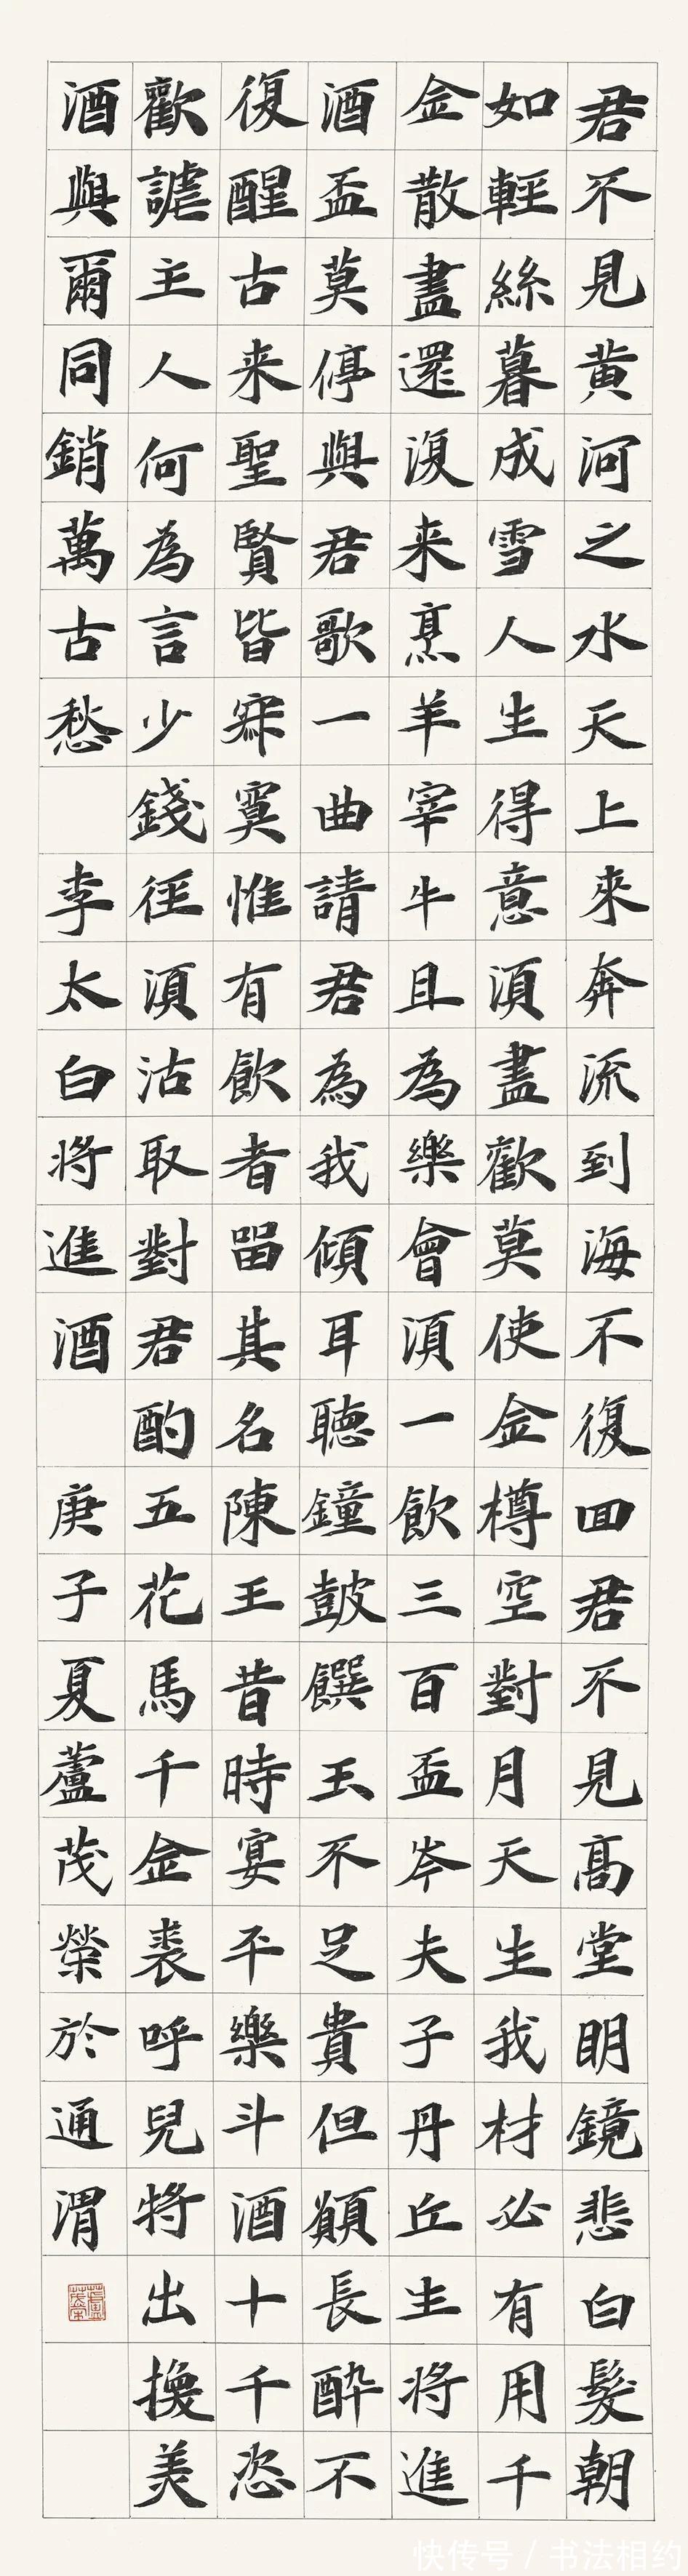 君不見黄河之水天上來奔流到海不復回君不見高堂明鏡悲白髮朝
如輕絲暮成雪人生得意須盡歡莫使金樽空對月天生我材必有用千
金散盡還復来烹羊宰牛且為樂會須一飲三百盃岑夫子丹丘生将進
酒盃莫停與君歌一曲請君為我傾耳聴鐘鼓饌玉不足貴但願長醉不
復醒古来聖賢皆寂寞惟有飲者留其名陳王昔時宴平樂斗酒十千恣
歡謔主人何為言少錢徑須沽取對君酌五花馬千金裘呼兒将出換美
酒與爾同銷萬古愁 李太白将進酒 庚子夏蘆茂榮於通渭
快传号 / 书法相约